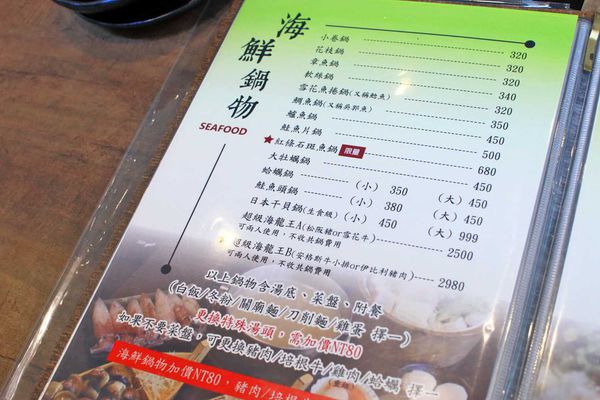 海鮮鍋物
SEAFOOD
小卷鍋 320
花枝鍋 320
章魚鍋 320
軟絲鍋 340
雪花魚捲鍋(又稱鯰魚) 320
鯛魚鍋(又稱吳郭魚) 350
鱸魚鍋 450
鮭魚片鍋 500
★紅條石斑魚鍋 限量 680
大牡蠣鍋 450
蛤蠣鍋 (小) 350 (大) 450
鮭魚頭鍋 (小) 380 (大) 450
日本干貝鍋(生食級) (小) 450 (大) 999
超級海龍王A(松阪豬or雪花牛) 2500
可兩人使用,不收共鍋費用
超級海龍王B(安格斯牛小排or伊比利豬肉) 2980
可兩人使用,不收共鍋費用
以上鍋物含湯底、菜盤、附餐
(白飯/冬粉/關廟麵/刀削麵/雞蛋 擇一)
更換特殊湯頭,需加價NT80
如果不要菜盤,可更換豬肉/培根牛/雞肉/蛤蠣 擇一
海鮮鍋物加價NT80,豬肉/培根